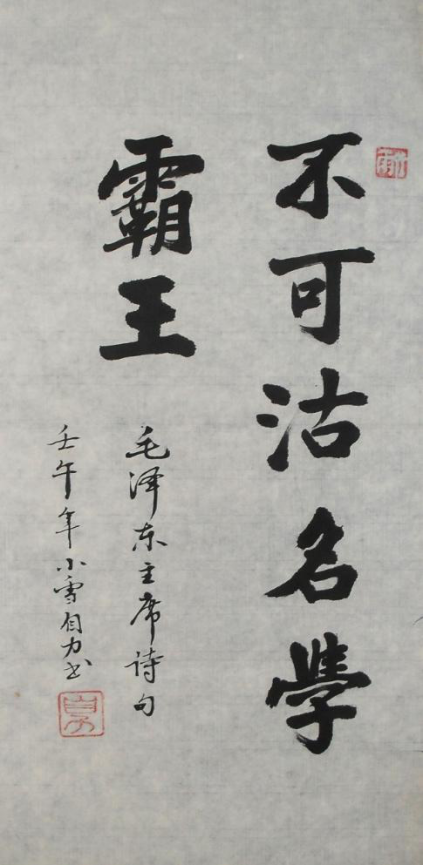 不可沽名學
霸王
毛泽东主席诗句
壬午年小雪自力书